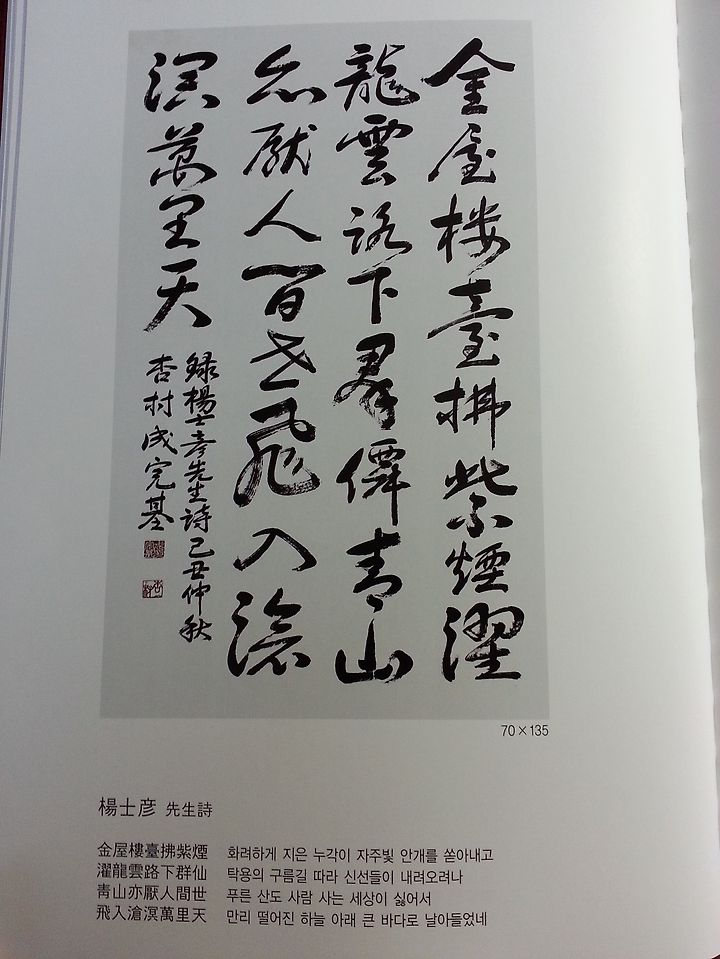 金屋楼臺拂紫煙濯
龍雲路下羣僊青山
亦厭人間世飛入滄
溟萬里天
録楊士彦先生詩己丑仲秋
杏村成完基
杏村
70×135
楊士彦 先生詩
金屋樓臺拂紫煙 화려하게 지은 누각이 자주빛 안개를 쏟아내고
濯龍雲路下群仙 탁용의 구름길 따라 신선들이 내려오려나
靑山亦厭人間世 푸른 산도 사람 사는 세상이 싫어서
飛入滄溟萬里天 만리 떨어진 하늘 아래 큰 바다로 날아들었네